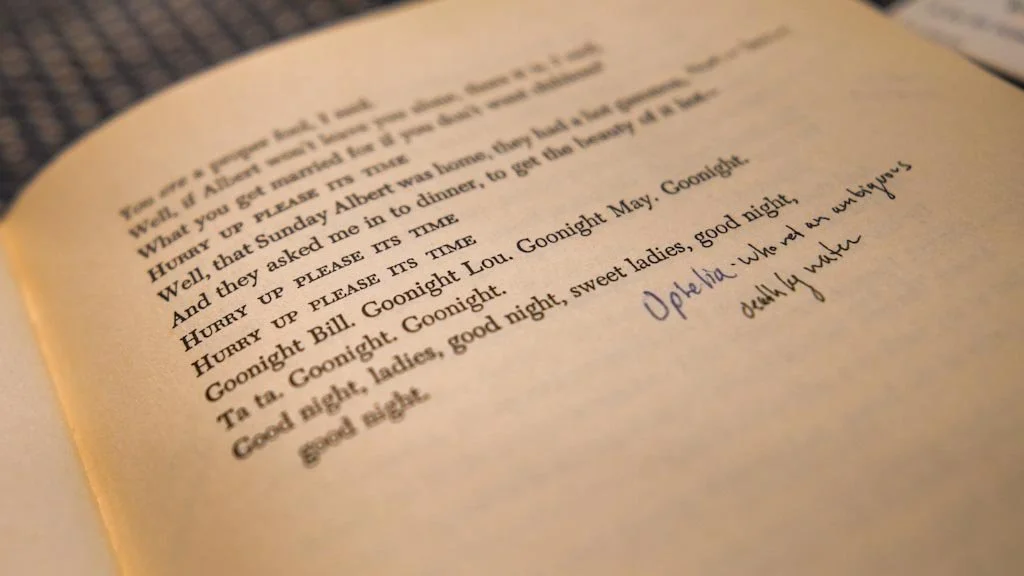 You are a proper fool, I said.
Well, if Albert won't leave you alone, there it is, I said,
What you get married for if you don't want children?
HURRY UP PLEASE ITS TIME
Well, that Sunday Albert was home, they had a hot gammon,
And they asked me in to dinner, to get the beauty of it hot—
HURRY UP PLEASE ITS TIME
HURRY UP PLEASE ITS TIME
Goonight Bill. Goonight Lou. Goonight May. Goonight.
Ta ta. Goonight. Goonight.
Good night, ladies, good night, sweet ladies, good night,
good night.
Ophelia. who
an ambiguous
death by water